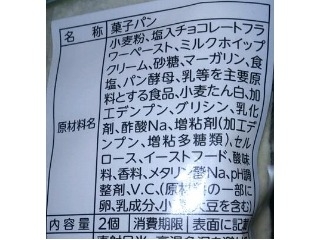 名 称 菓子パン
小麦粉、塩入チョコレートフラ
ワーペースト、ミルクホイップ
クリーム、砂糖、マーガリン、食
塩、パン酵母、乳等を主要原
料とする食品、小麦たん白、加
工デンプン、グリシン、乳化
原材料名 剤、酢酸Na、増粘剤(加工デ
ンプン、増粘多糖類)、セル
ロース、イーストフード、酸味
料、香料、メタリン酸Na、pH調
整剤、V.C、(原材料の一部に
卵、乳成分、小麦、大豆を含む)
内容量 2個 消費期限 表面に記載